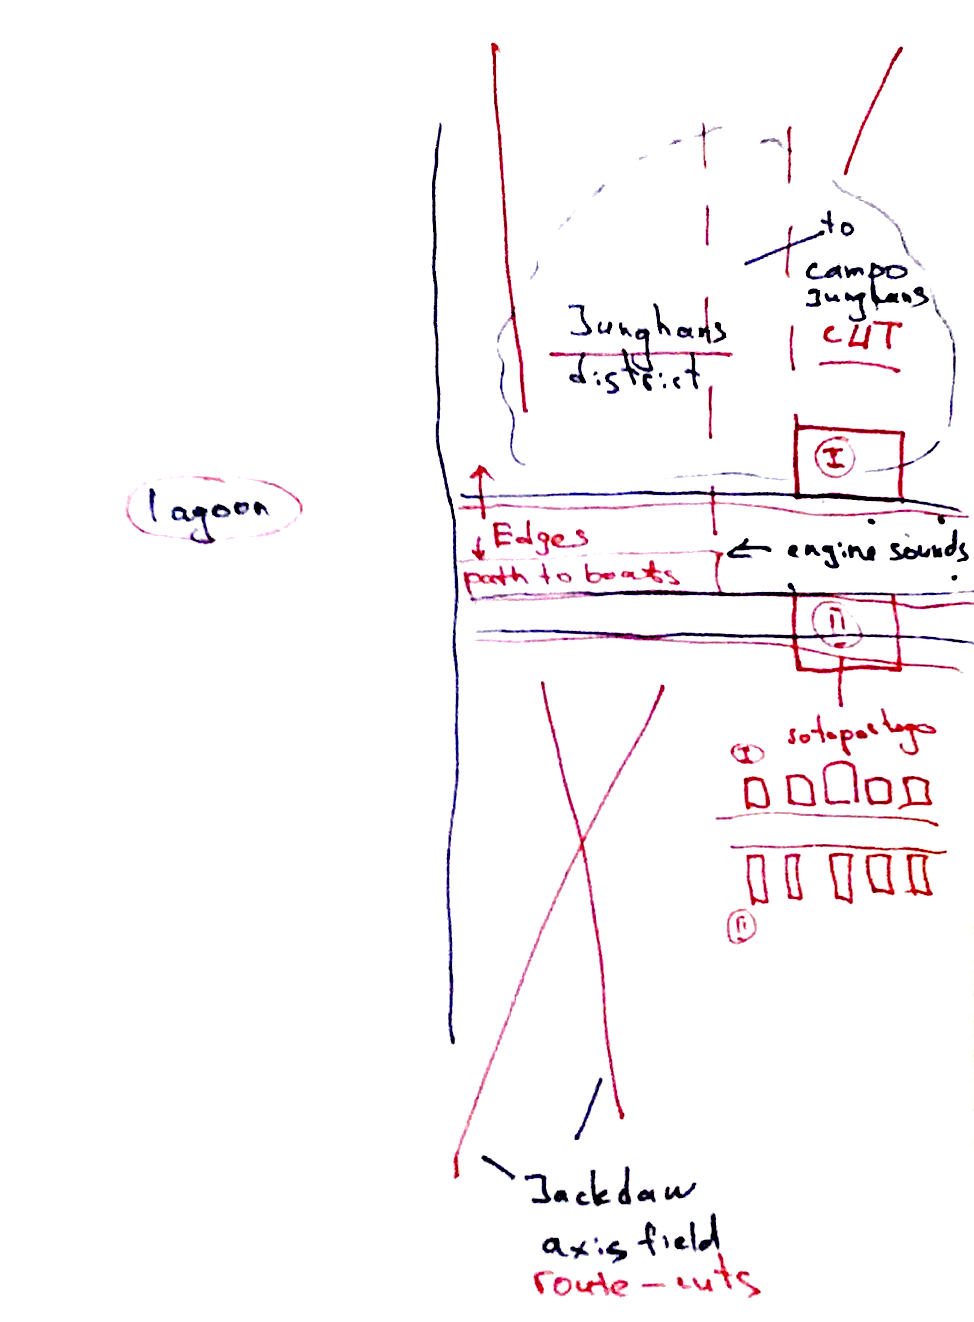 to
campo
Junghans
CUT
Junghans
district
I
lagoon
Edges
engine sounds
path to boats
II
sotoportego
I
II
Jackdaw
axis field
route-cuts